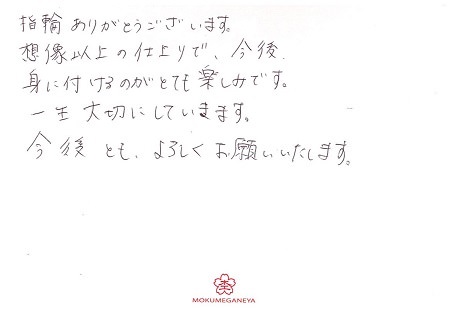 指輪ありがとうございます。
想像以上の仕上りで、今後
身に付けるのがとても楽しみです。
一生大切にしていきます。
今後とも、よろしくお願いいたします。
MOKUMEGANEYA